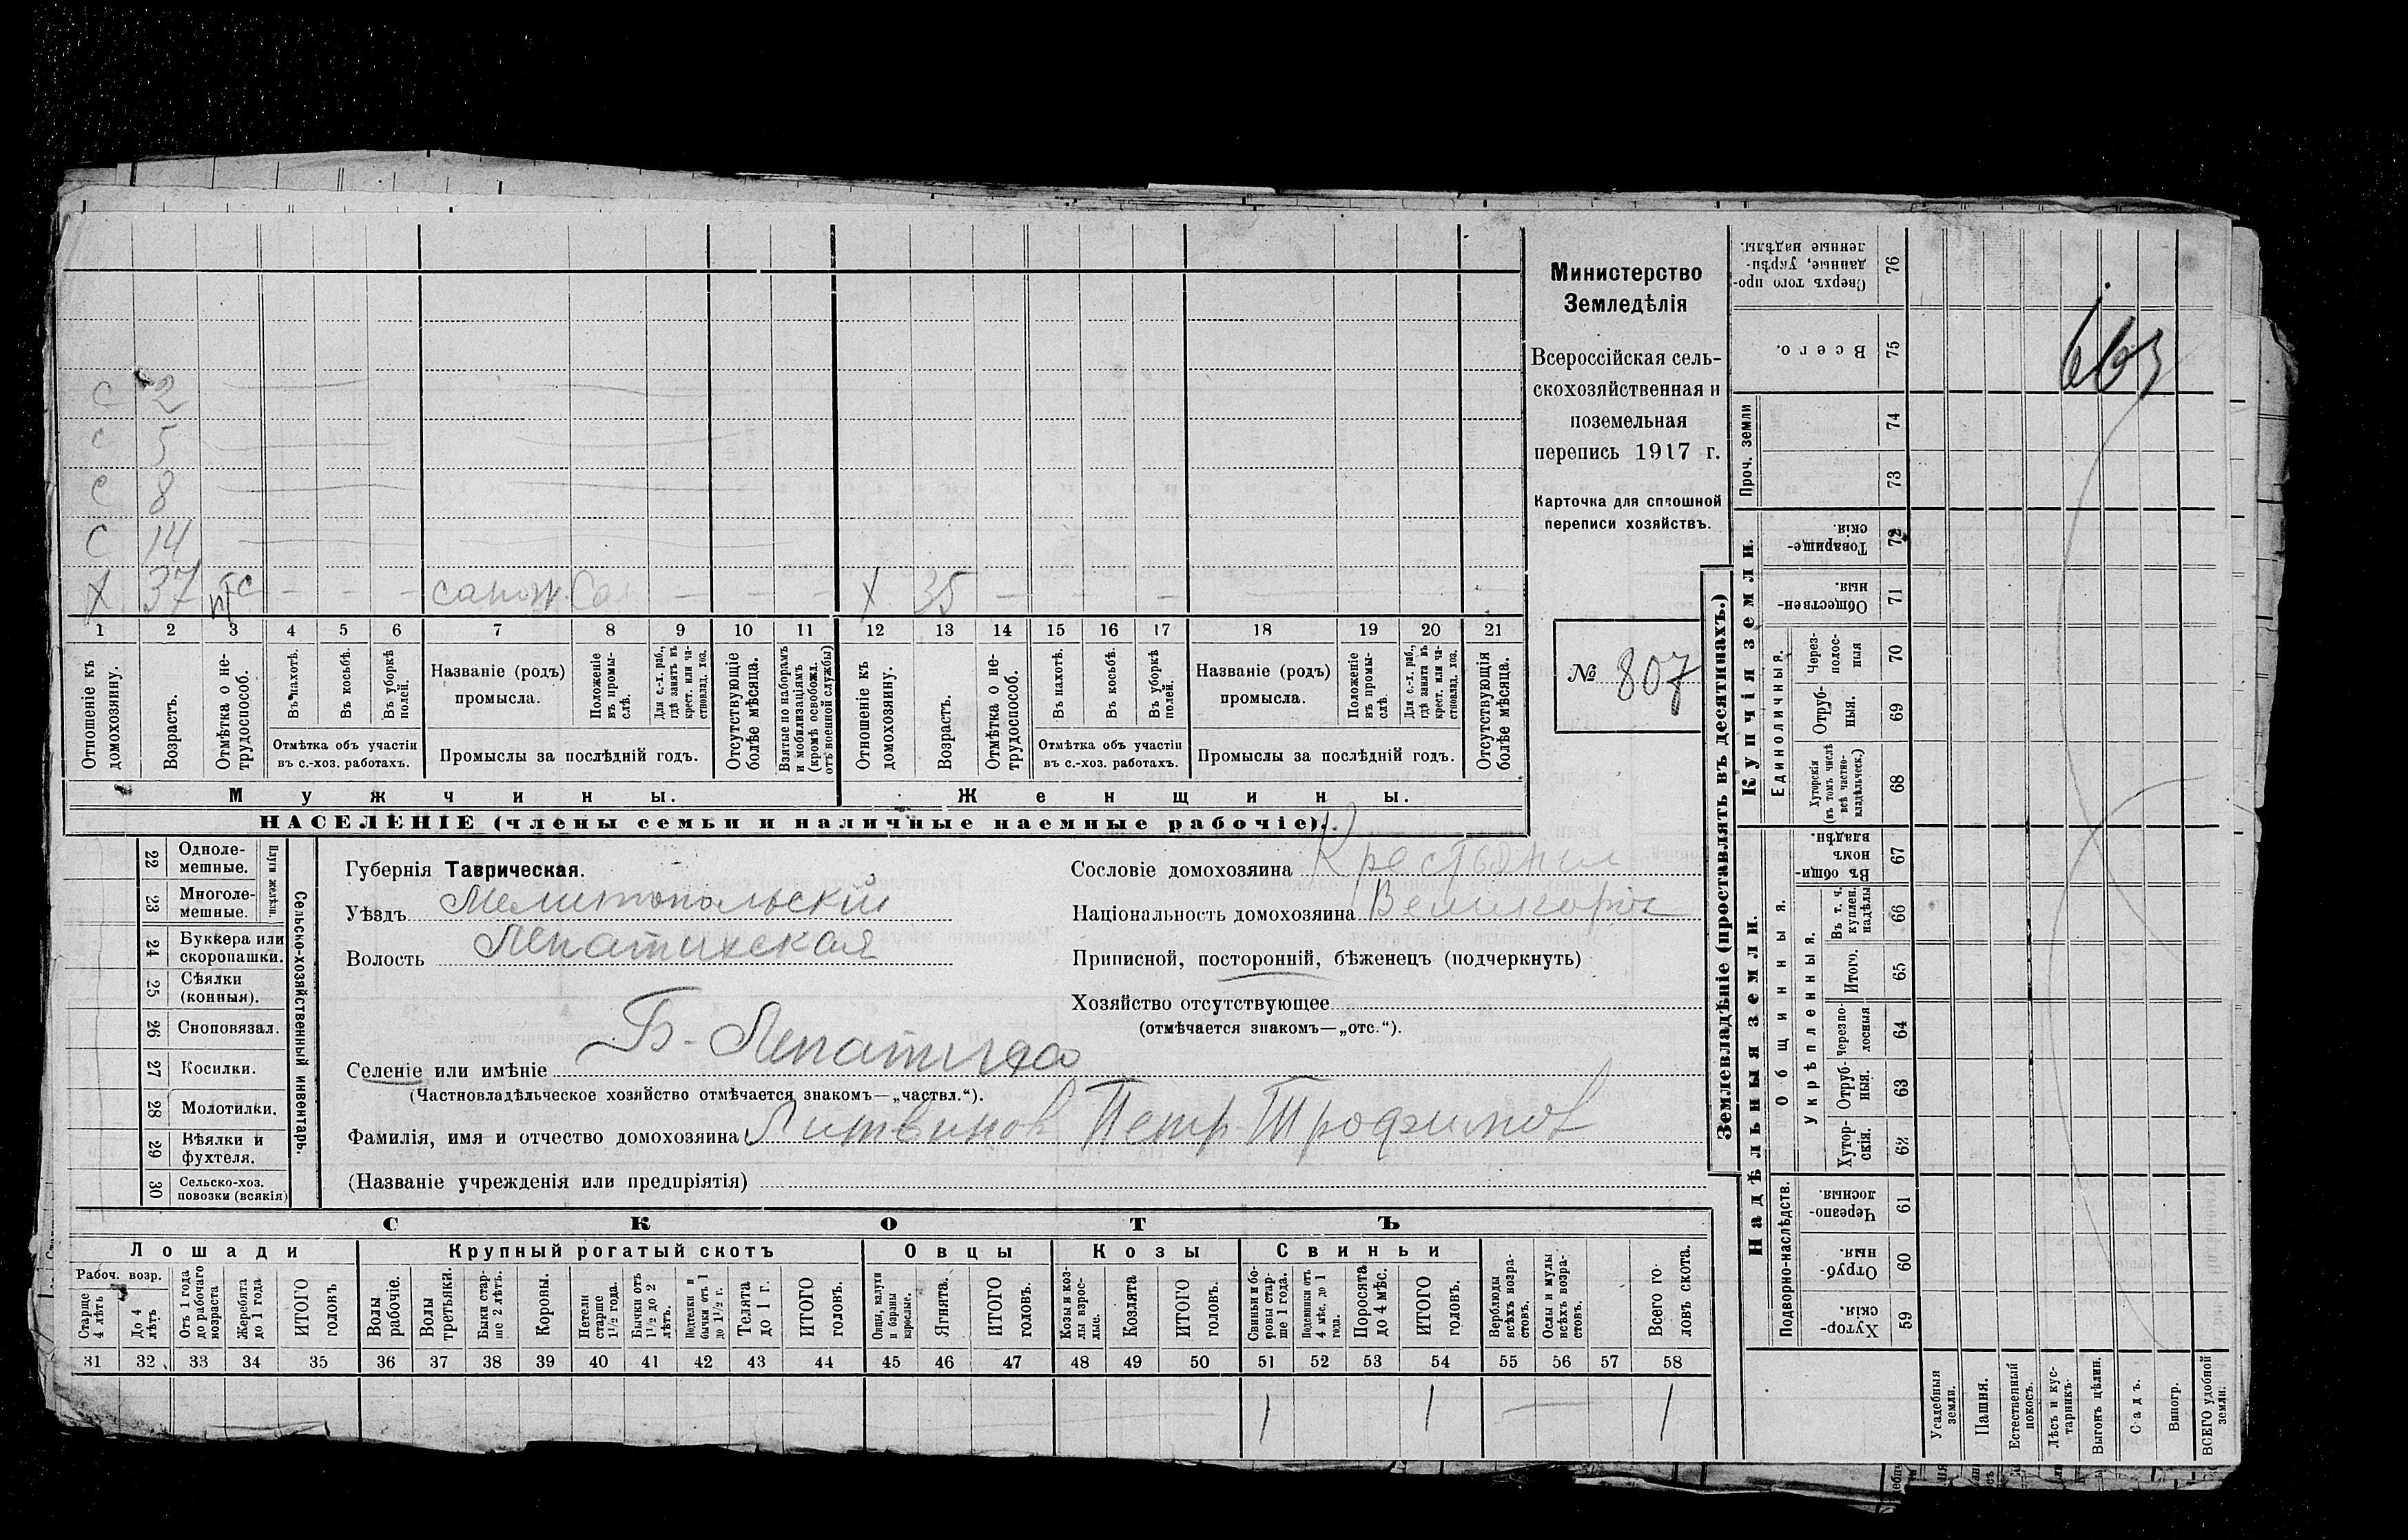 с 2
с 5
с 8
с 14
х 37 нтс - - - сапож. Сам - - - х 35 - - - -
1 2 3 4 5 6 7 8 9 10 11 12 13 14 15 16 17 18 19 20 21
Отношеніе къ домохозяину.
Возрастъ.
Отмѣтка о не-трудоспособ.
Въ пахотѣ.
Въ косьбѣ.
Въ уборкѣ полей.
Отмѣтка объ участіи
въ с.-хоз. работахъ.
Названіе (родъ)
промысла.
Положеніе въ промы-слѣ.
Для с.-х. раб., гдѣ занятъ въ крест. или ча-стновлад. хоз.
Промыслы за послѣдній годъ.
Отсутствующіе болѣе мѣсяца.
Взятые по наборамъ и мобилизаціямъ (кромѣ освобожд. отъ военной службы)
Отношеніе къ домохозяину.
Возрастъ.
Отмѣтка о не-трудоспособ.
Въ пахотѣ.
Въ косьбѣ.
Въ уборкѣ полей.
Отмѣтка объ участіи
въ с.-хоз. работахъ.
Названіе (родъ)
промысла.
Положеніе въ промы-слѣ.
Для с.-х. раб., гдѣ занята въ крест. или ча-стновлад. хоз.
Промыслы за послѣдній годъ.
Отсутствующія болѣе мѣсяца.
Мужчины. Женщины.
НАСЕЛЕНІЕ (члены семьи и наличные наемные рабочіе).
Министерство
Земледѣлія
Всероссійская сель-
скохозяйственная и
поземельная
перепись 1917 г.
Карточка для сплошной
переписи хозяйствъ.
№ 807
22 Одноле-мешные.
23 Многоле-мешные.
Плуги желѣзн.
24 Буккера или скоропашки.
25 Сѣялки (конныя).
26 Сноповязал.
27 Косилки.
28 Молотилки.
29 Вѣялки и фухтеля.
30 Сельско-хоз. повозки (всякія)
Сельско-хозяйственный инвентарь.
Губернія Таврическая.
Уѣздъ Мелитопольскій
Волость Лепатихская
Селеніе или имѣніе Б-Лепатиха
(Частновладѣльческое хозяйство отмѣчается знакомъ—„частвл.“).
Фамилія, имя и отчество домохозяина Литвинов Петр Трофимов
(Названіе учрежденія или предпріятія)
Сословіе домохозяина Крестьянин
Національность домохозяина Великорос
Приписной, посторонній, бѣженецъ (подчеркнуть)
Хозяйство отсутствующее
(отмѣчается знакомъ—„отс.“).
СКОТЪ
Лошади Крупный рогатый скотъ Овцы Козы Свиньи
Рабоч. возр.
Старше 4 лѣтъ
До 4 лѣтъ
Отъ 1 года до рабочаго возраста
Жеребята до 1 года
ИТОГО головъ
Волы рабочіе.
Волы третьяки.
Быки стар-ше 2 лѣтъ.
Коровы.
Нетели старше 1½ года.
Бычки отъ 1½ до 2 лѣтъ.
Подтелки и бычки отъ 1 до 1½ г.
Телята до 1 г.
ИТОГО головъ.
Овцы, валухи и бараны взрослые.
Ягнята.
ИТОГО головъ.
Козы и коз-лы взрос-лые.
Козлята
ИТОГО головъ.
Свиньи и бо-ровы стар-ше 1 года.
Подсвинки отъ 4 мѣс. до 1 года.
Поросята до 4 мѣс.
ИТОГО головъ.
Верблюды всѣхъ возра-стовъ.
Ослы и мулы всѣхъ возра-стовъ.
Всего го-ловъ скота.
31 32 33 34 35 36 37 38 39 40 41 42 43 44 45 46 47 48 49 50 51 52 53 54 55 56 57 58
1 1 1
Землевладѣніе (проставлять въ десятинахъ.)
Надѣльныя земли. Купчія земли. Проч. земли
Подворно-наслѣдств.
Общинныя.
Укрѣпленныя.
Единоличныя.
Хутор-скія. 59
Отруб-ныя. 60
Черезпо-лосныя. 61
Хутор-скія. 62
Отруб-ныя. 63
Черезпо-лосныя 64
Итого. 65
Въ т. ч. куплен. надѣлы 66
Въ общин-номъ владѣн. 67
Хуторскія (въ томъ числѣ всѣ частно-владѣльческ.) 68
Отруб-ныя. 69
Через-полос-ныя 70
Обществен-ныя. 71
Товарище-скія. 72
73
74
Всего. 75
Сверхъ того про-данные, укрѣп-ленные надѣлы. 76
Усадебныя земли.
Пашня.
Естественный покосъ.
Лѣсъ и кус-тарникъ.
Выгонъ цѣлин.
Садъ.
Виногр.
ВСЕГО удобной земли.